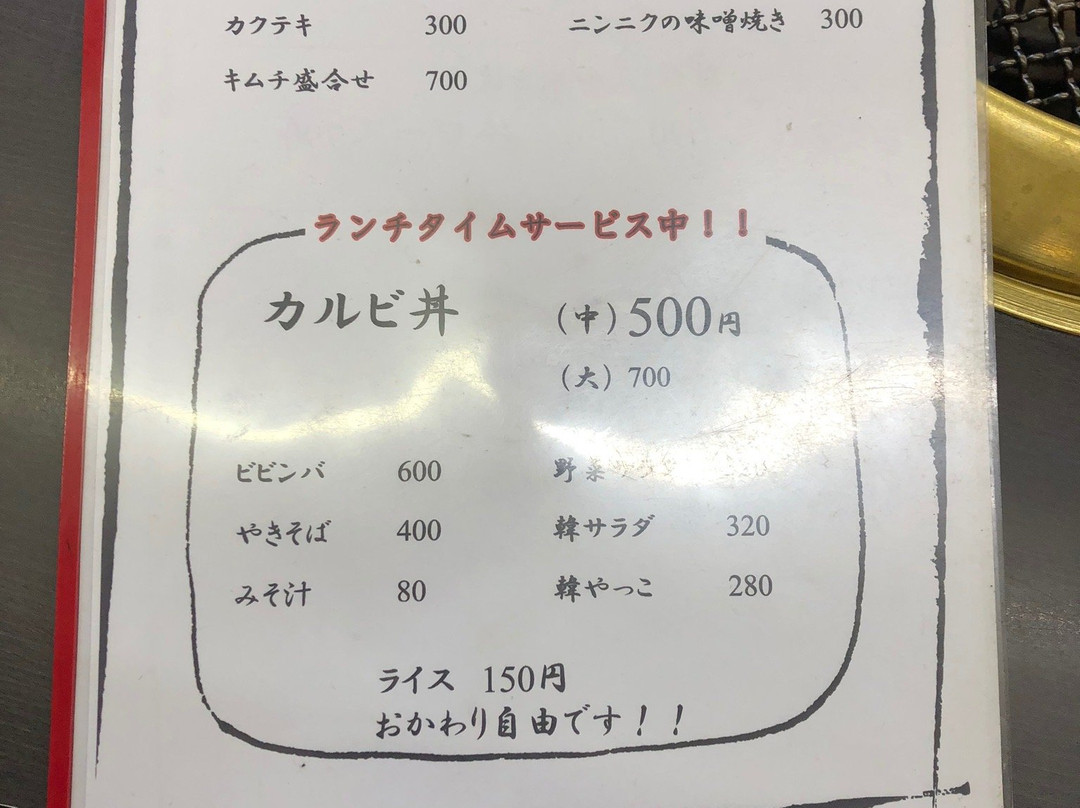 カクテキ 300 ニンニクの味噌焼き 300
キムチ盛合せ 700
ランチタイムサービス中！！
カルビ丼 （中）500円
（大）700
ビビンバ 600 野菜
やきそば 400 韓サラダ 320
みそ汁 80 韓やっこ 280
ライス 150円
おかわり自由です！！